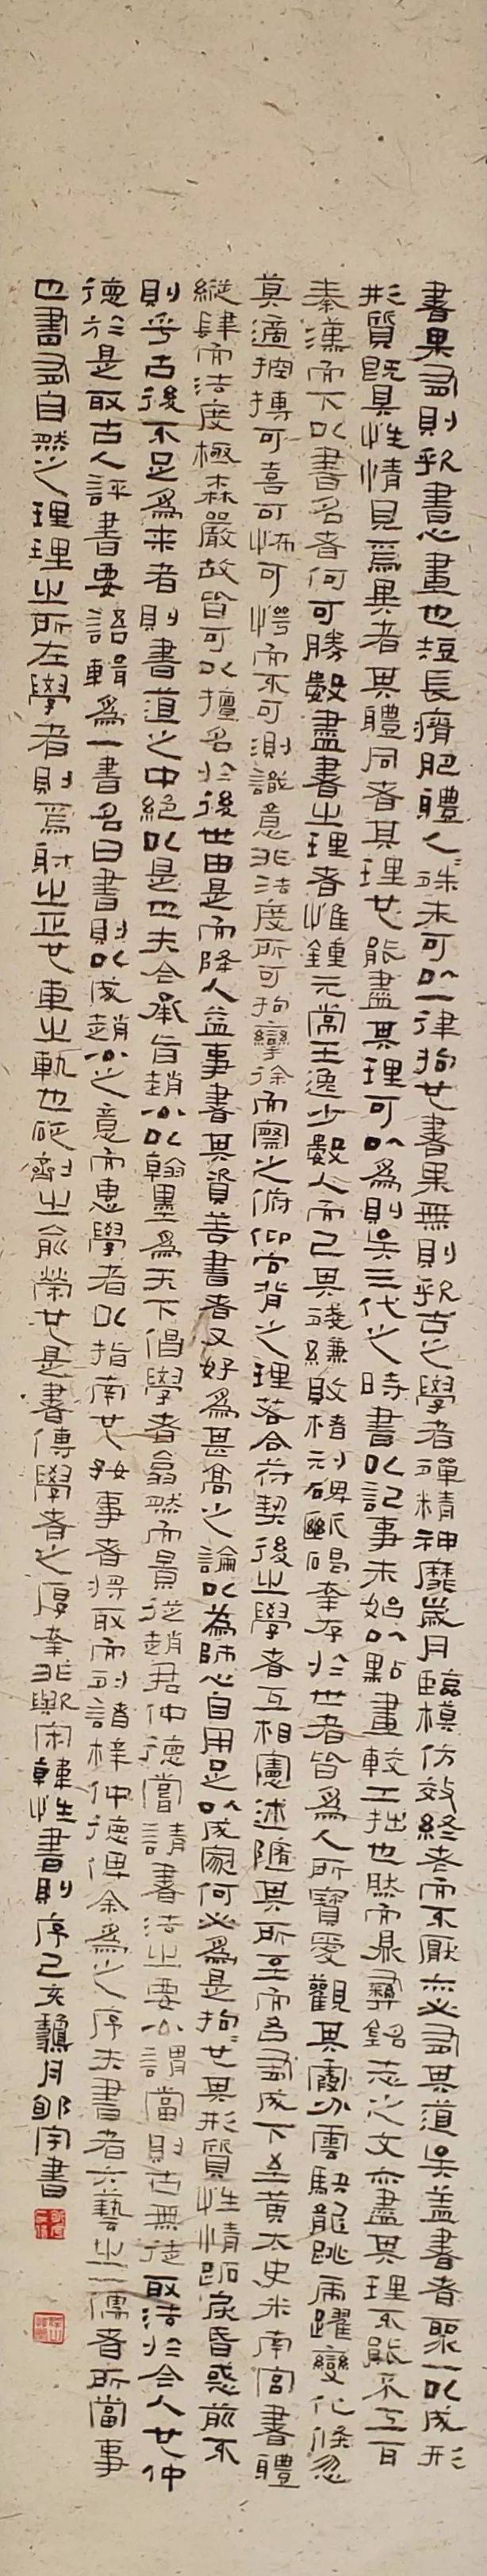 書果有則歟書心畫也短長瘠肥體人人殊未可以一律拘也書果無則歟古之學者殫精神靡歲月臨模仿效終老而不厭亦必有其道矣盖書者聚一以成形
形質既具性情見焉異者其體同者其理也能盡其理可以為則矣三代之時書以記事未始以點畫較工拙也然而鼎彝銘志之文亦盡其理不能不工自
秦漢而下以書名者何可勝數盡書之理者惟鍾元常王逸少數人而已其殘縑敗楮刓碑斷碣幸存於世者皆爲人所寶愛觀其霞分雲駃龍跳虎躍變化倏忽
莫適控摶可喜可怖可愕而不可測識意非法度所可拘攣徐而察之俯仰向背之理落合符契後之學者互相憲述隨其所至而各有成下至黃太史米南宮書體
縱肆而法度極森嚴故皆可以擅名於後世由是而降人益事書其資善書者又好為甚高之論以為師心自用足以成家何必為是拘拘也其形質性情跖戾昏惑前不
則乎古後不足為來者則書道之中絕以是也夫今承旨趙公以翰墨為天下倡學者翕然而景從趙君仲德嘗請書法之要公謂當則古無徒取法於今人也仲
德於是取古人評書要語輯為一書名曰書則以成趙公之意而惠學者以指南也好事者將取而刻諸梓仲德俾余為之序夫書者六藝之一儒者所當事
也書有自然之理理之所在學者則焉射之正也車之軌也砭劑之俞榮也是書傳學者之厚幸非歟宋韓性書則序己亥鶉月鄭宇書